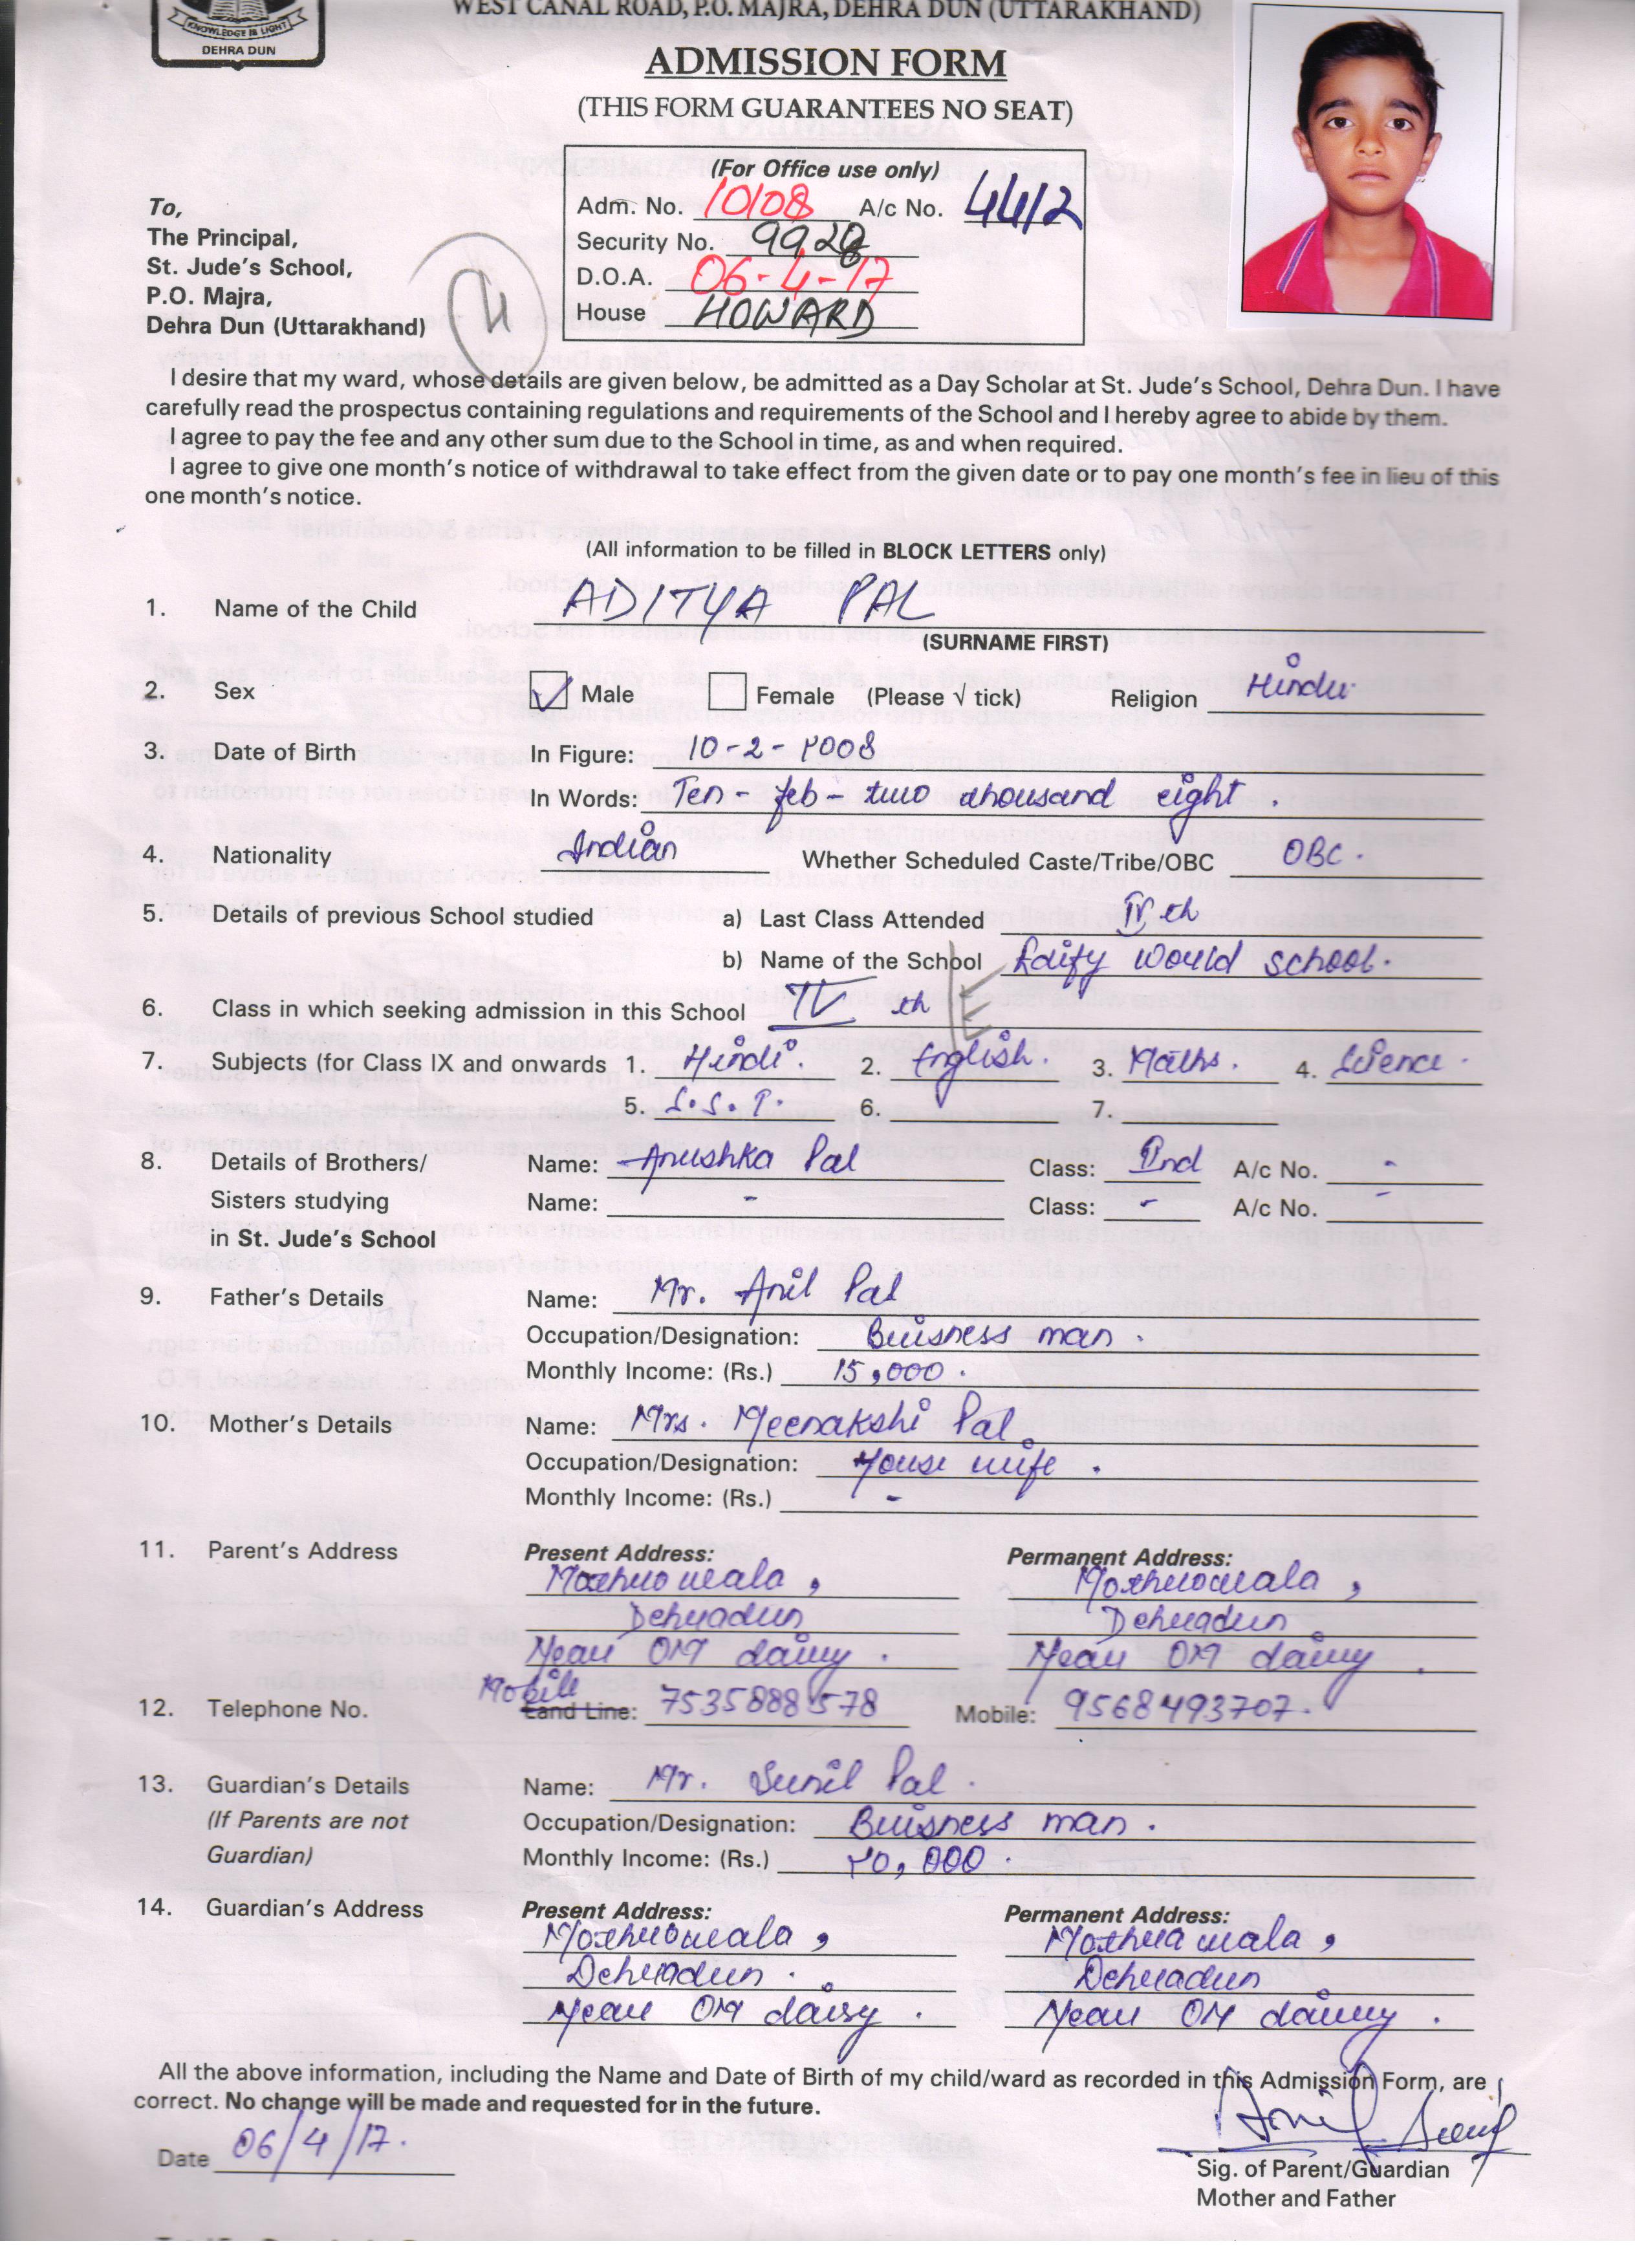 WEST CANAL ROAD, P.O. MAJRA, DEHRA DUN (UTTARAKHAND)
KNOWLEDGE IS LIGHT
DEHRA DUN
ADMISSION FORM
(THIS FORM GUARANTEES NO SEAT)
(For Office use only)
Adm. No. 10108 A/c No. 4412
Security No. 9928
D.O.A. 06-4-17
House HOWARD
To,
The Principal,
St. Jude's School,
P.O. Majra,
Dehra Dun (Uttarakhand)
I desire that my ward, whose details are given below, be admitted as a Day Scholar at St. Jude's School, Dehra Dun. I have
carefully read the prospectus containing regulations and requirements of the School and I hereby agree to abide by them.
I agree to pay the fee and any other sum due to the School in time, as and when required.
I agree to give one month's notice of withdrawal to take effect from the given date or to pay one month's fee in lieu of this
one month's notice.
(All information to be filled in BLOCK LETTERS only)
1. Name of the Child ADITYA PAL
(SURNAME FIRST)
2. Sex Male Female (Please √ tick) Religion Hindu
3. Date of Birth In Figure: 10-2-2008
In Words: Ten - feb - two thousand eight .
4. Nationality Indian Whether Scheduled Caste/Tribe/OBC OBC .
5. Details of previous School studied a) Last Class Attended IV th
b) Name of the School Edify World School.
6. Class in which seeking admission in this School IV th E
7. Subjects (for Class IX and onwards 1. Hindi. 2. English. 3. Maths. 4. Science .
5. S.S.T. 6. 7.
8. Details of Brothers/ Name: Anushka Pal Class: IInd A/c No. -
Sisters studying Name: - Class: - A/c No. -
in St. Jude's School
9. Father's Details Name: Mr. Anil Pal
Occupation/Designation: Buisness man .
Monthly Income: (Rs.) 15,000 .
10. Mother's Details Name: Mrs. Meenakshi Pal
Occupation/Designation: House wife .
Monthly Income: (Rs.) -
11. Parent's Address Present Address: Permanent Address:
Mothrowala , Mothrowala ,
Dehradun Dehradun
Near OM dairy . Near OM dairy .
Mobile
12. Telephone No. Land Line: 7535888578 Mobile: 9568493707.
13. Guardian's Details Name: Mr. Sunil Pal .
(If Parents are not Occupation/Designation: Buisness man .
Guardian) Monthly Income: (Rs.) 20,000 .
14. Guardian's Address Present Address: Permanent Address:
Mothrowala , Mothrawala ,
Dehradun . Dehradun
Near OM dairy . Near OM dairy .
All the above information, including the Name and Date of Birth of my child/ward as recorded in this Admission Form, are
correct. No change will be made and requested for in the future.
Date 06/4/17.
Sig. of Parent/Guardian
Mother and Father